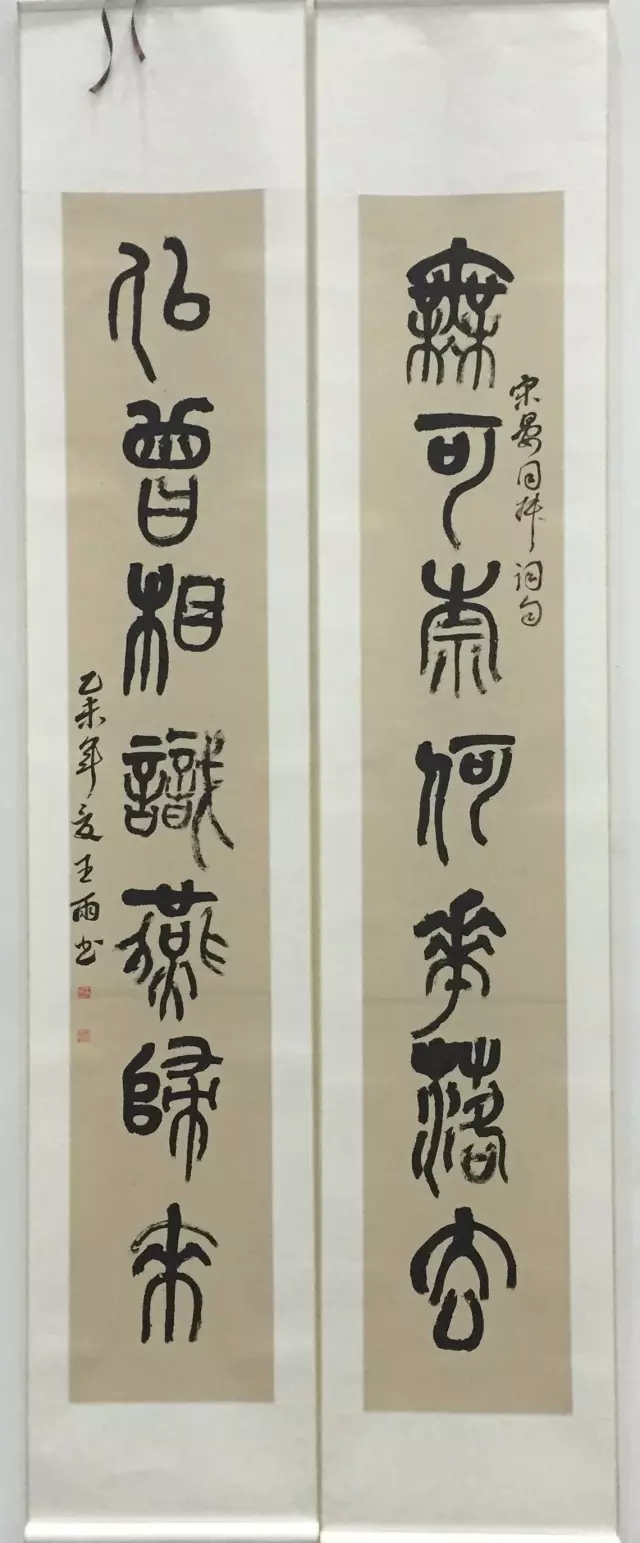 宋晏同叔词句
無可奈何花落去
似曾相識燕歸來
乙未年夏王雨书